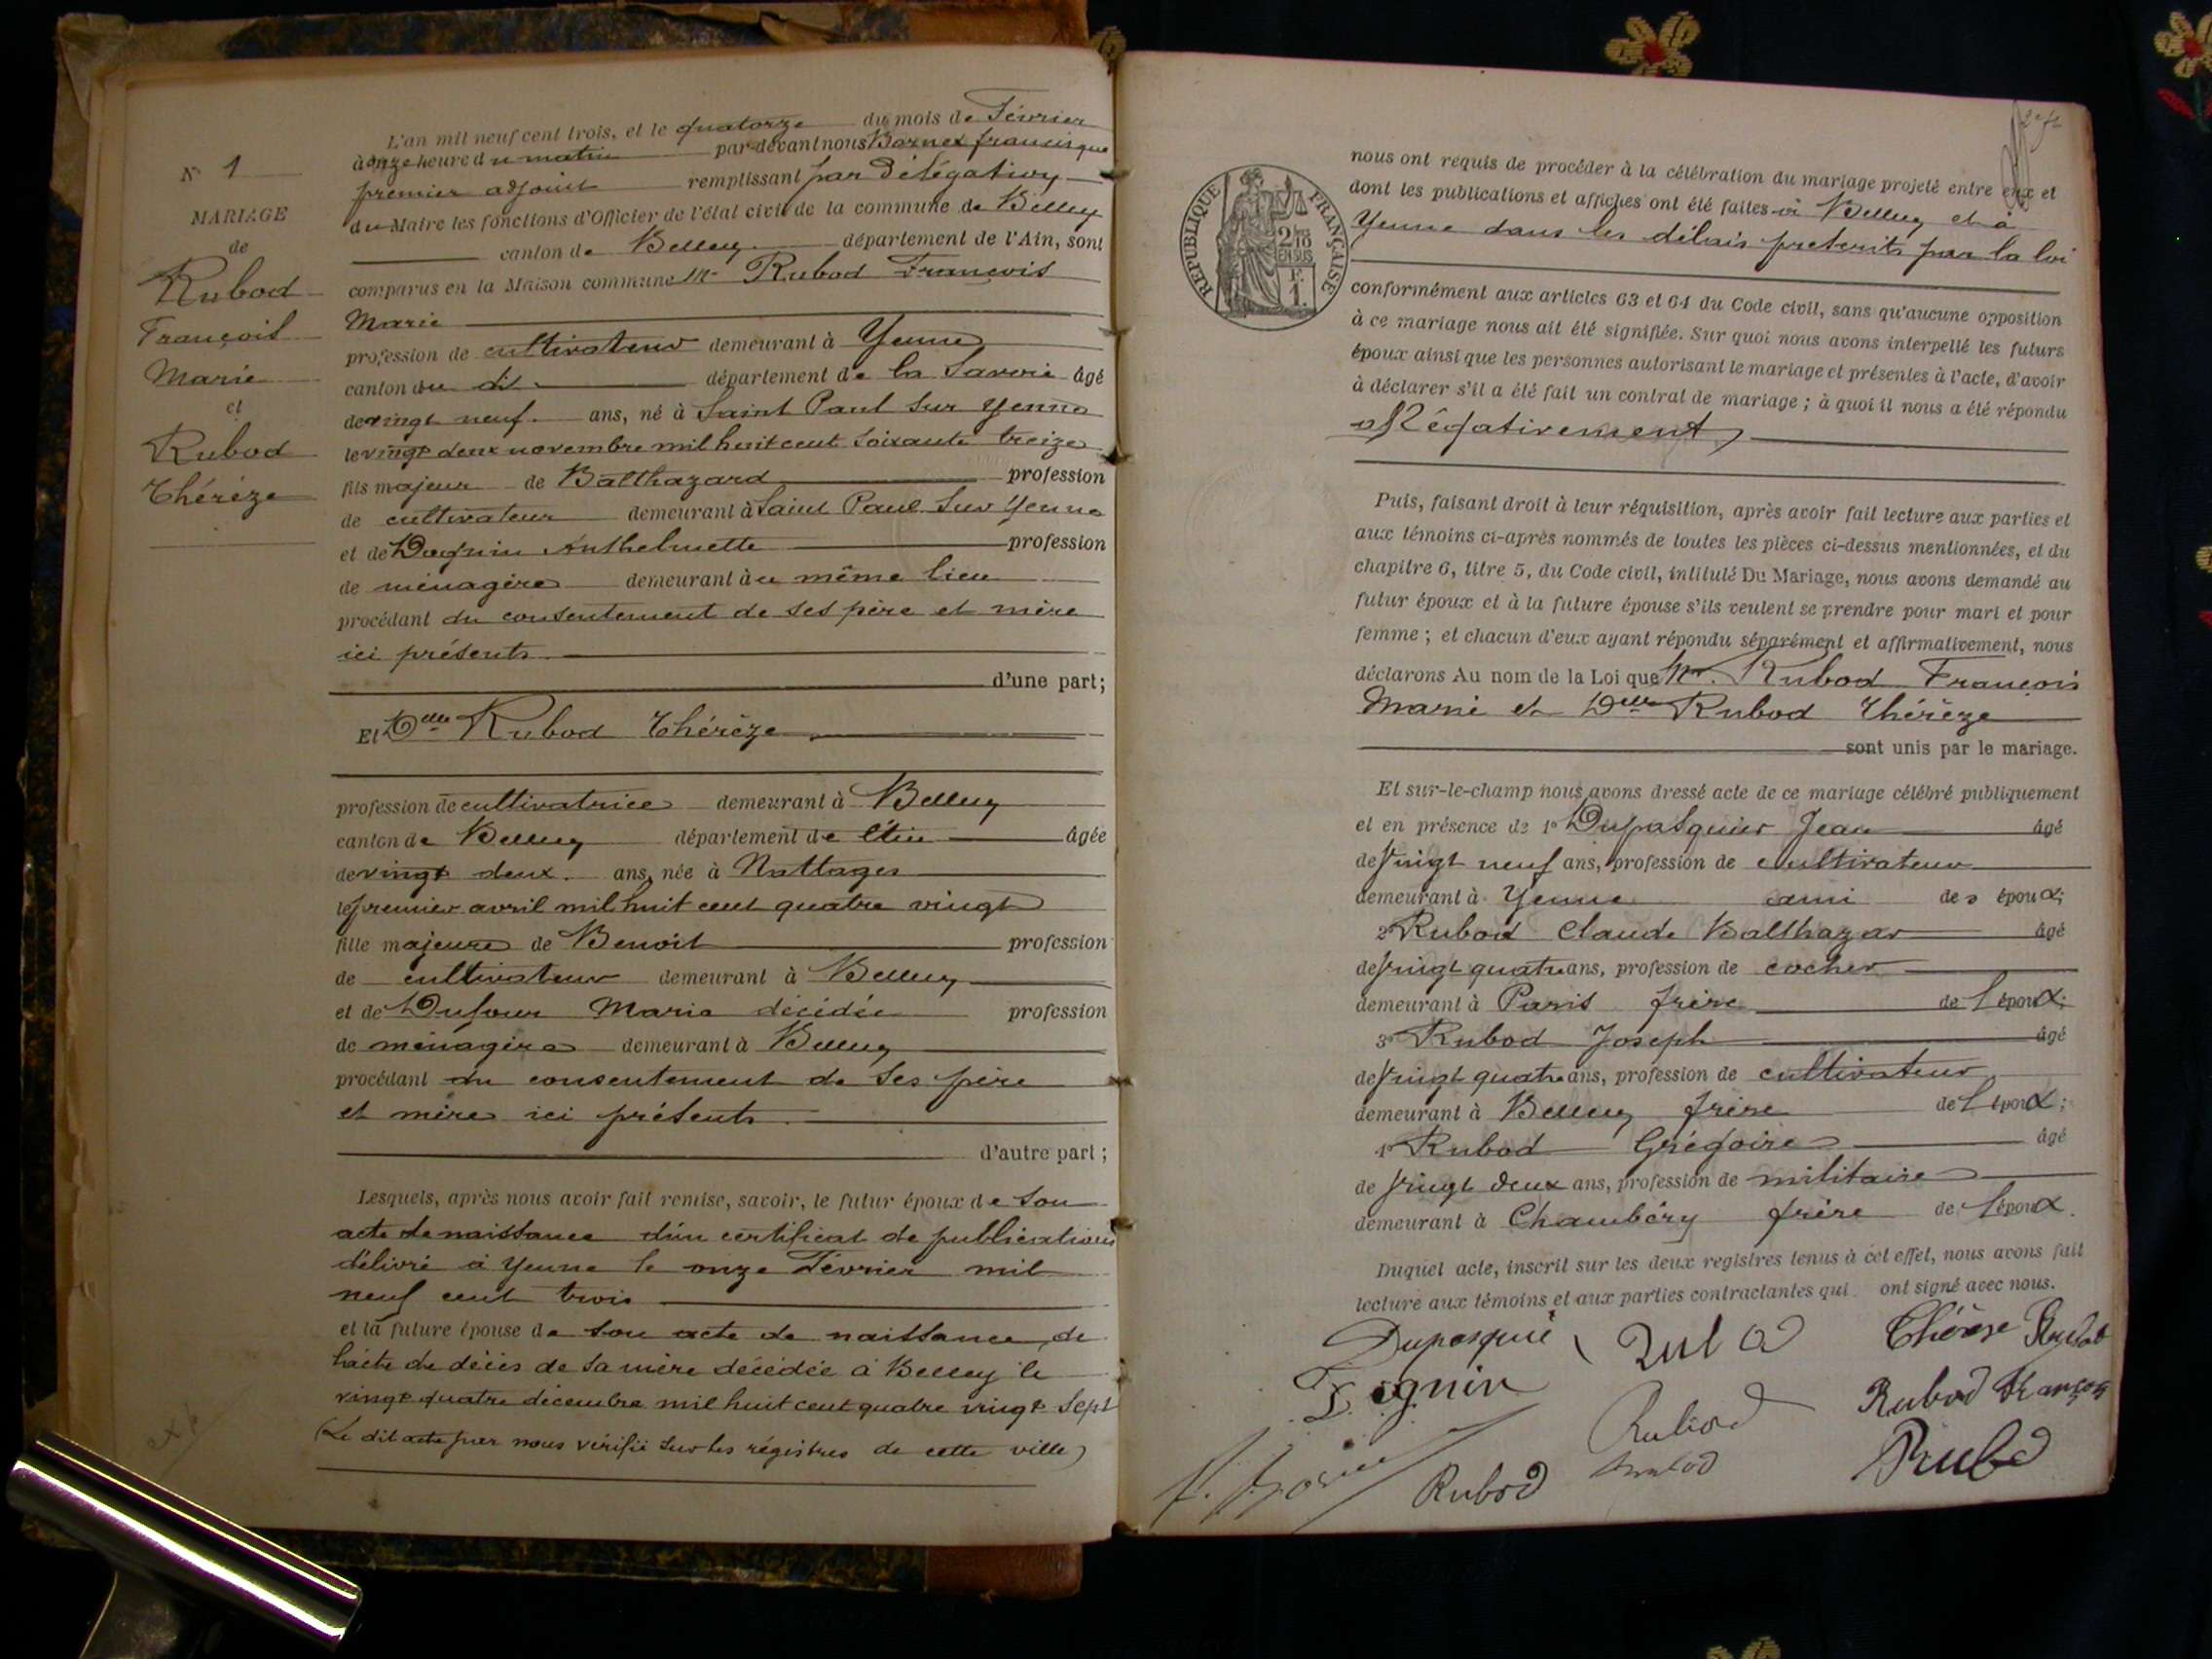 N° 1
MARIAGE
de
Rubod
François
Marie
et
Rubod
Thérèze
L'an mil neuf cent trois, et le quatorze du mois de Février
à onze heure du matin par-devant nous Barnex francisque
premier adjoint remplissant par Délégation
du Maire les fonctions d'Officier de l'état civil de la commune de Belley
canton de Belley département de l'Ain, sont
comparus en la Maison commune Mr Rubod François
Marie
profession de cultivateur demeurant à Yenne
canton du dit département de la Savoie âgé
de vingt neuf ans, né à Saint Paul sur Yenne
le vingt deux novembre mil huit cent soixante treize
fils majeur de Balthazard profession
de cultivateur demeurant à Saint Paul sur Yenne
et de Doguin Anthelmette profession
de ménagère demeurant au même lieu
procédant du consentement de ses père et mère
ici présents
d'une part;
Et Delle Rubod Thérèze
profession de cultivatrice demeurant à Belley
canton de Belley département de l'Ain âgée
de vingt deux ans, née à Nattages
le premier avril mil huit cent quatre vingt
fille majeure de Benoît profession
de cultivateur demeurant à Belley
et de Dufour Marie décédée profession
de ménagère demeurant à Belley
procédant du consentement de ses père
et mère ici présents
d'autre part;
Lesquels, après nous avoir fait remise, savoir, le futur époux de son
acte de naissance d'un certificat de publications
délivré à Yenne le onze Février mil
neuf cent trois
et la future épouse de son acte de naissance, de
l'acte de décès de sa mère décédée à Belley le
vingt quatre décembre mil huit cent quatre vingt sept
(Le dit acte par nous vérifié sur les régistres de cette ville)
REPUBLIQUE FRANÇAISE
2/10
EN SUS
F.
1.
nous ont requis de procéder à la célébration du mariage projeté entre eux et
dont les publications et affiches ont été faites à Belley et à
Yenne dans les délais prescrits par la loi
conformément aux articles 63 et 64 du Code civil, sans qu'aucune opposition
à ce mariage nous ait été signifiée. Sur quoi nous avons interpellé les futurs
époux ainsi que les personnes autorisant le mariage et présentes à l'acte, d'avoir
à déclarer s'il a été fait un contrat de mariage; à quoi il nous a été répondu
Négativement
Puis, faisant droit à leur réquisition, après avoir fait lecture aux parties et
aux témoins ci-après nommés de toutes les pièces ci-dessus mentionnées, et du
chapitre 6, titre 5, du Code civil, intitulé Du Mariage, nous avons demandé au
futur époux et à la future épouse s'ils veulent se prendre pour mari et pour
femme; et chacun d'eux ayant répondu séparément et affirmativement, nous
déclarons Au nom de la Loi que Mr. Rubod François
Marie et Delle Rubod Thérèze
sont unis par le mariage.
Et sur-le-champ nous avons dressé acte de ce mariage célébré publiquement
et en présence de 1° Dupasquier Jean âgé
de vingt neuf ans, profession de cultivateur
demeurant à Yenne ami des époux;
2° Rubod Claude Balthazar âgé
de vingt quatre ans, profession de cocher
demeurant à Paris frère de l'époux;
3° Rubod Joseph âgé
de vingt quatre ans, profession de cultivateur
demeurant à Belley frère de l'époux;
4° Rubod Grégoire âgé
de vingt deux ans, profession de militaire
demeurant à Chambéry frère de l'époux.
Duquel acte, inscrit sur les deux registres tenus à cet effet, nous avons fait
lecture aux témoins et aux parties contractantes qui ont signé avec nous.
Dupasquié Thérèse Rubod
Doguin Rubod François
Rubod
Rubod
Rubod